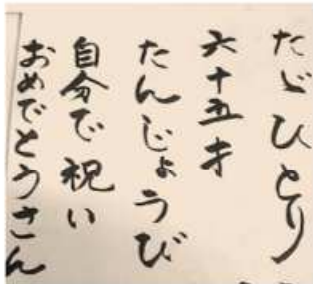 たゞひとり
六十五才
たんじょうび
自分で祝い
おめでとうさん